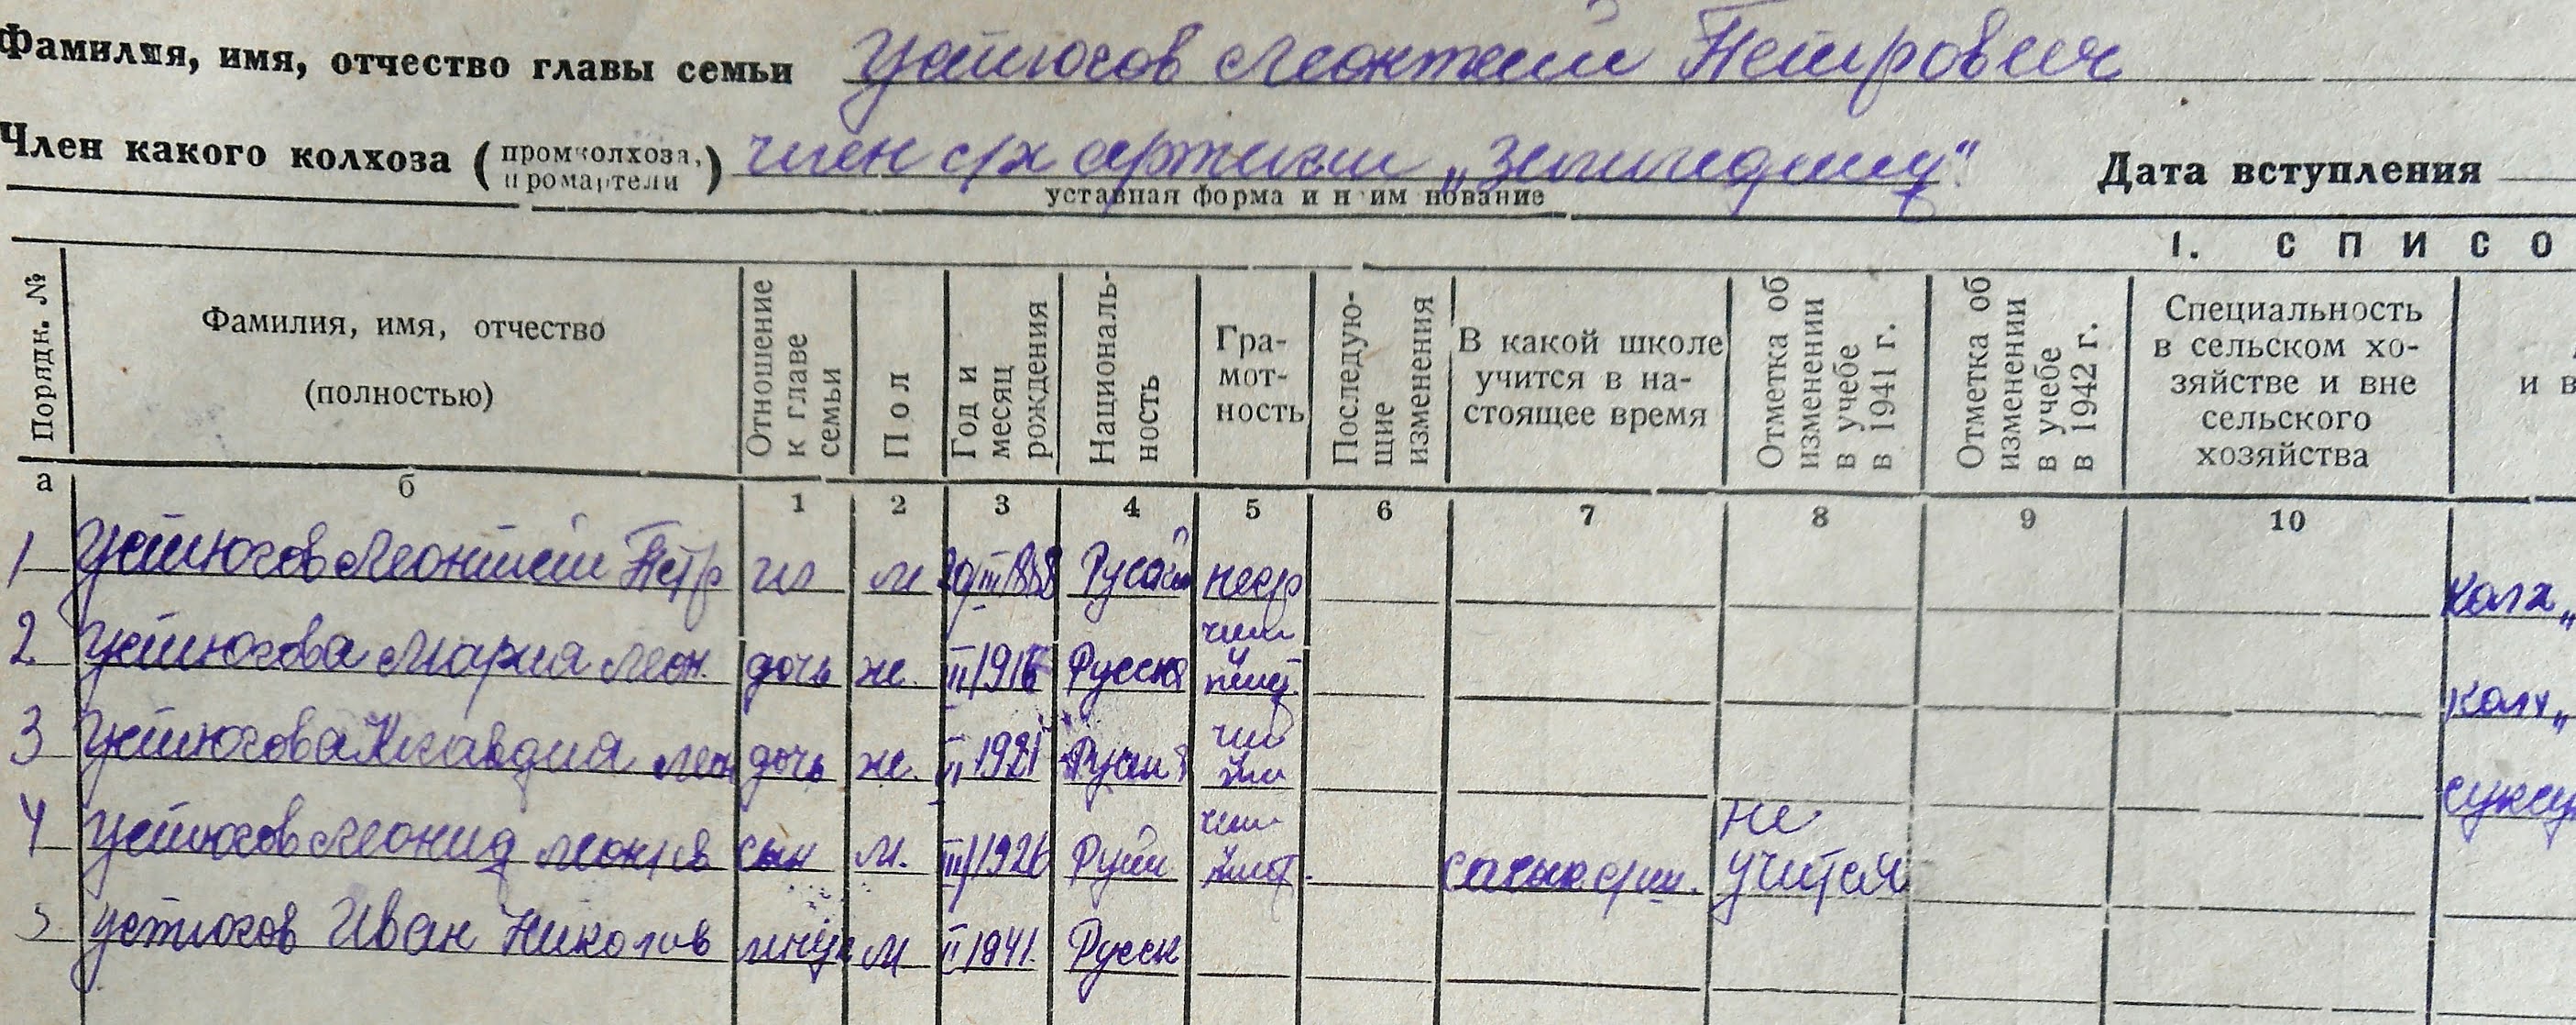 Фамилия, имя, отчество главы семьи Устюгов Леонтий Петрович
Член какого колхоза (промколхоза, промартели) член с/х артели Дата вступления
уставная форма и наименование
I. СПИСО
Порядк. №
Фамилия, имя, отчество (полностью)
Отношение к главе семьи
Пол
Год и месяц рождения
Националь-ность
Гра-мот-ность
Последую-щие изменения
В какой школе учится в на-стоящее время
Отметка об изменении в учебе в 1941 г.
Отметка об изменении в учебе в 1942 г.
Специальность в сельском хо-зяйстве и вне сельского хозяйства
и в
а б 1 2 3 4 5 6 7 8 9 10
1 Устюгов Леонтий Петр гл м 20/III 1888 Русский негр Колх „
2 Устюгова Мария Леон. дочь ж. III/1916 Русская Колх „
3 Устюгова Клавдия Леон дочь ж. 1921
4 Устюгов Леонид Леонтев сын м. III/1926 не учится
5 Устюгов Иван Николаев внук м II 1941 Русск